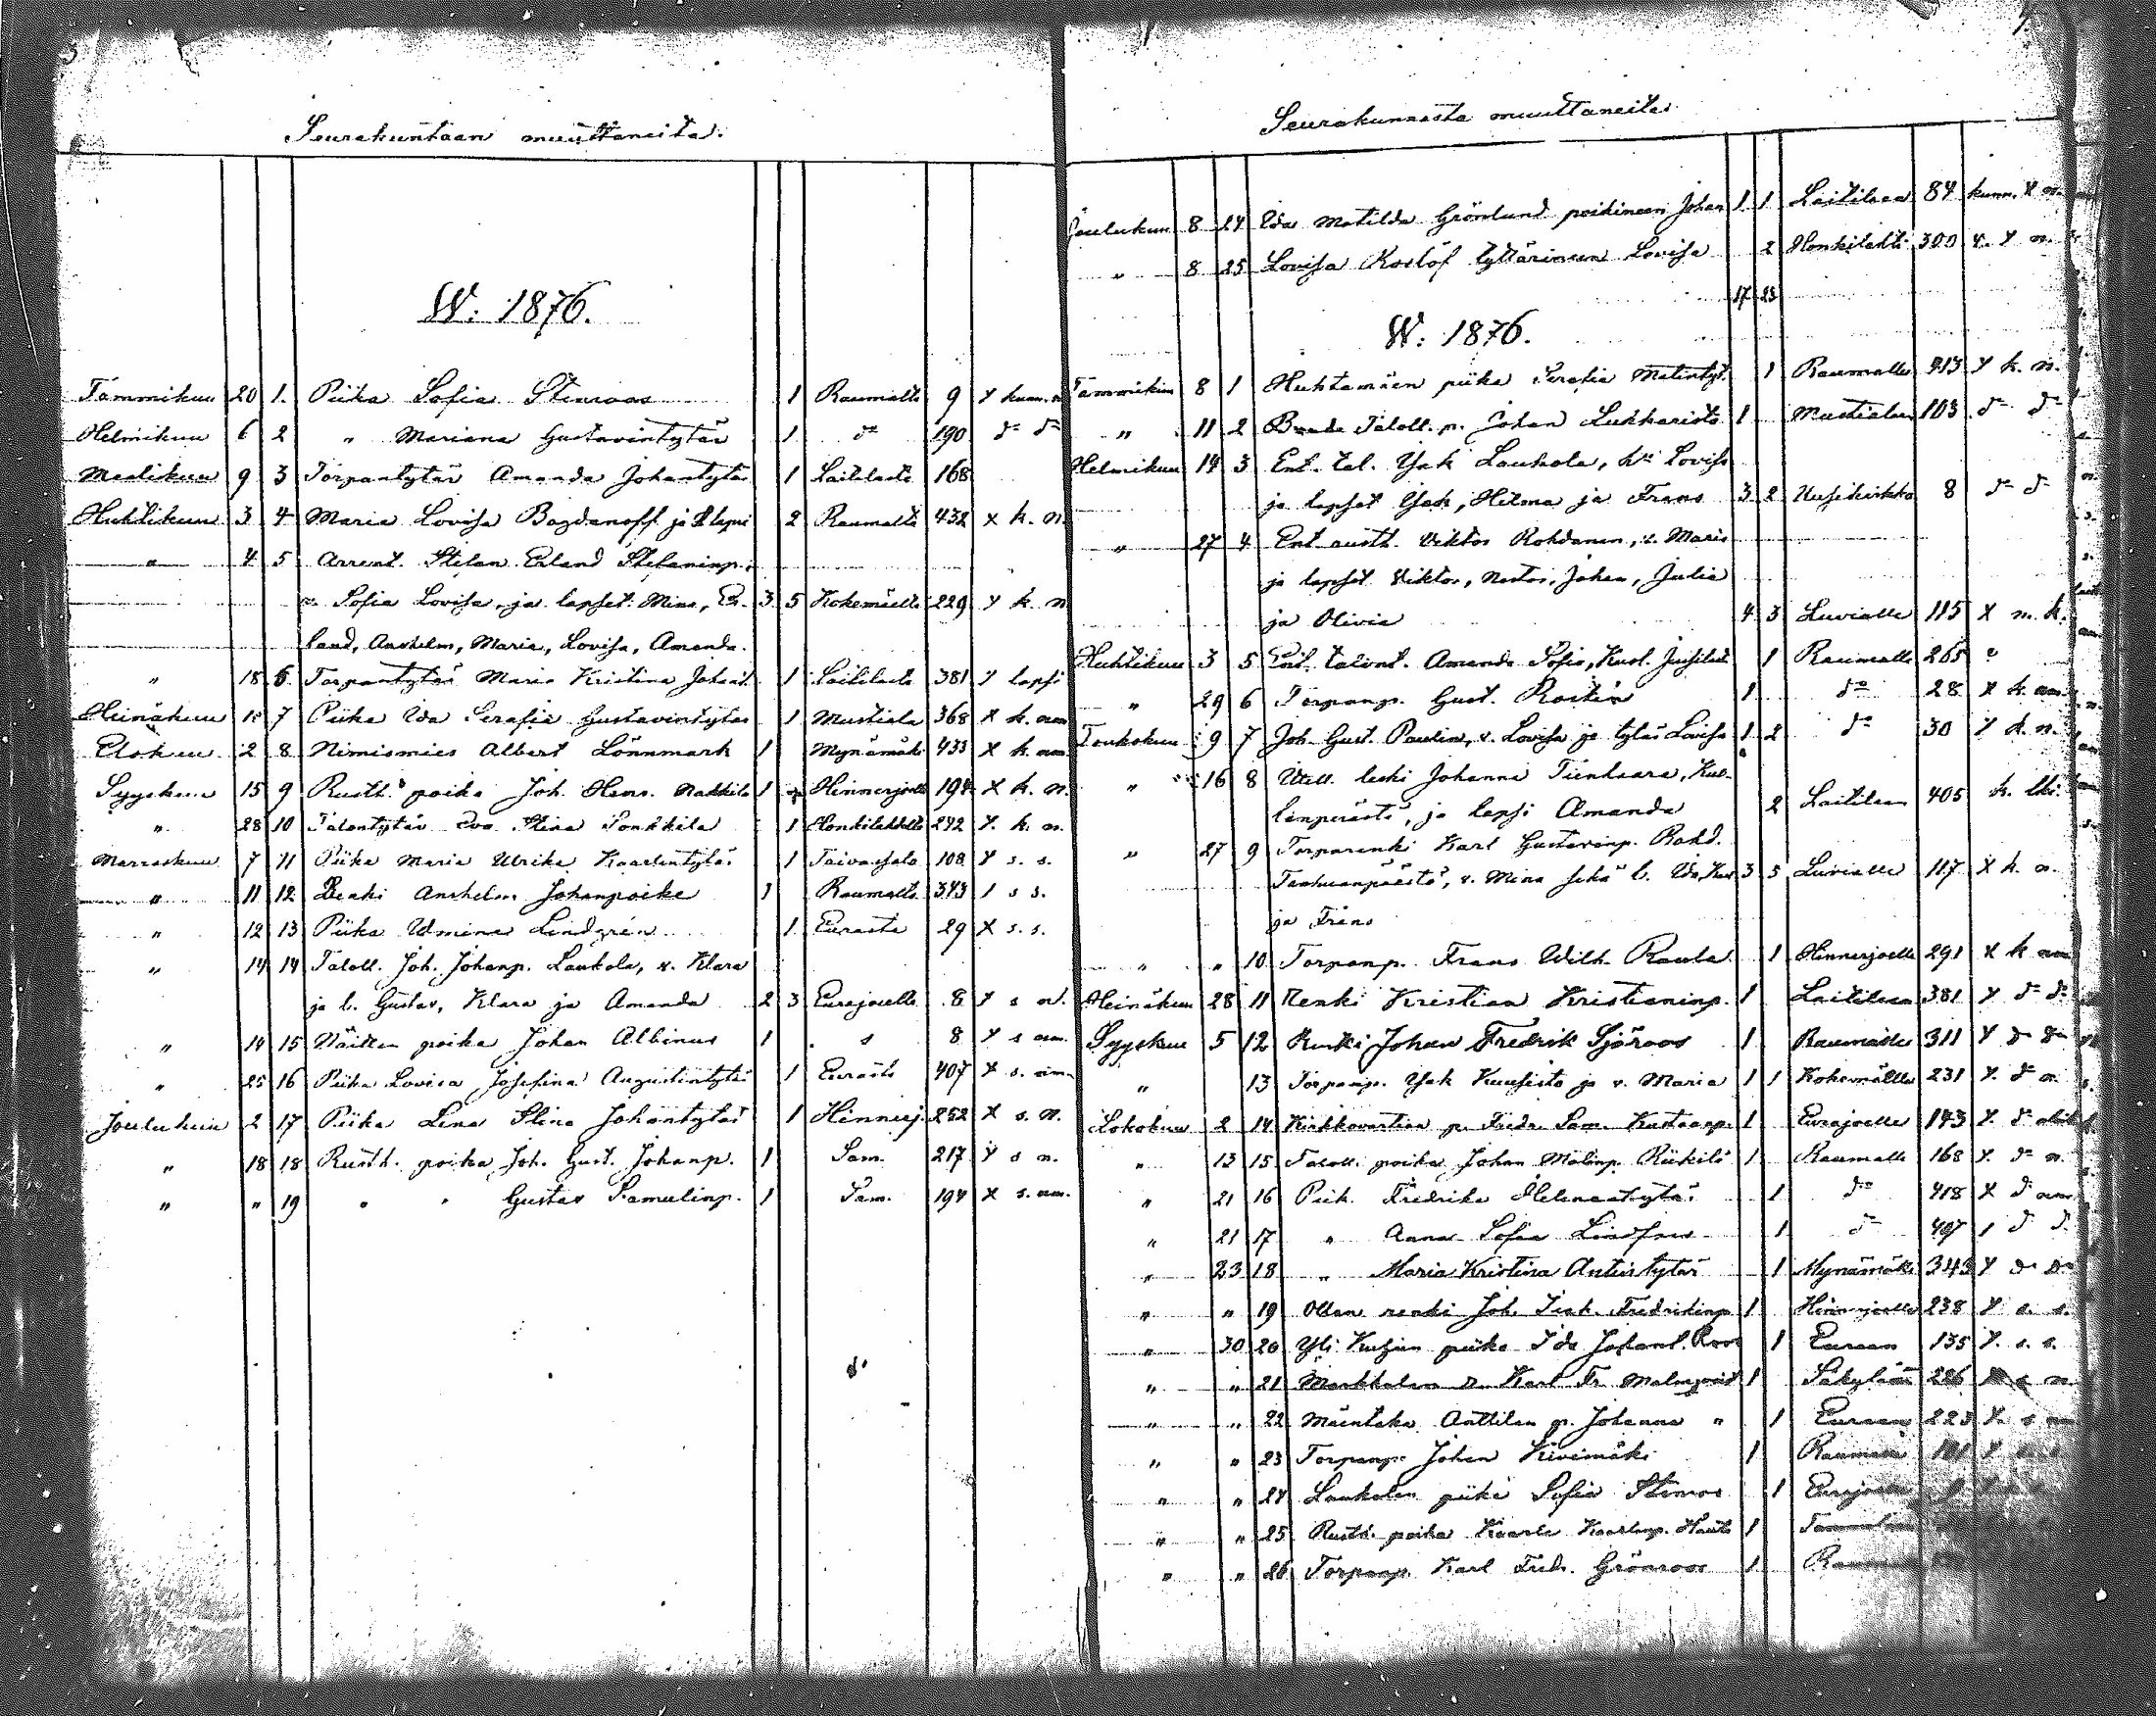 Seurakuntaan muuttaneita.
W: 1876.
Tammikuu 20 1. Piika Sofia Stenroos 1 Raumalta 9 x kunn. n
Helmikuu 6 2 " Mariana Gustavintytär 1 do 190 do do
Maaliskuu 9 3 Torpantytär Amanda Johantytär 1 Laitilasta 168
Huhtikuu 3 4 Maria Lovisa Bogdanoff ja lapsi 2 Raumalta 432 x k. n.
" 4 5 Arrent. Stefan Erland Stefaninp.
v. Sofia Lovisa, ja lapset Mina, Er- 3 5 Kokemäeltä 229 x k. n
land, Anshelm, Maria, Lovisa, Amanda.
" 18 6 Torpantytär Maria Kristina Johant. 1 Laitilasta 381 x lapsi
Heinäkuu 18 7 Piika Ida Serafia Gustavintytär 1 Mustiala 368 x k. nm
Elokuu 2 8 Nimismies Albert Lönnmark 1 Mynämäki 433 x k. nm
Syyskuu 15 9 Rusth. poika Joh. Henr. Nakkila 1 Hinnerjoelta 194 x k. n.
" 28 10 Talontytär Eva Stina Sonkkila 1 Honkilahdelta 272 x. k. n.
Marraskuu 7 11 Piika Maria Ulrika Kaarlentytär 1 Taivassalo 108 x s. s.
" 11 12 Renki Anshelm Johanpoika 1 Raumalta 343 1 s s.
" 12 13 Piika Vilmina Lindgrén 1 Eurasta 29 x s. s.
" 14 14 Taloll. Joh. Johanp. Laukola, v. Klara
ja l. Gustav, Klara ja Amanda 2 3 Eurajoelta 8 x s n.
" 14 15 Näitten poika Johan Albinus 1 s 8 x s nm.
" 25 16 Piika Lovisa Josefina Augustintytär 1 Eurasta 407 x s. nm.
Joulukuu 2 17 Piika Lina Stina Johantytär 1 Hinnerj. 252 x s. n.
" 18 18 Rusth. poika Joh. Gust. Johanp. 1 Sam. 217 x s n.
" " 19 " " Gustav Samulinp. 1 Sam. 194 x s. nm.
Seurakunnasta muuttaneita.
Joulukuu 8 24 Ida Matilda Grönlund poikineen Johan 1 1 Laitilaan 84 kunn. x n.
" 8 25 Lovisa Koslöf tyttärineen Lovisa 2 Honkilahti 300 v. x n.
17 23
W: 1876.
Tammikuu 8 1 Huhtamäen piika Serafia Matintyt. 1 Raumalle 213 x k. n.
" 11 2 Taloll. p. Johan Lukkarista 1 Mustialaan 103 do do
Helmikuu 14 3 Ent. tal. Isak Laukola, Lovisa
ja lapset Isak, Hilma ja Frans 3 2 Uusikirkko 8 do do
" 27 4 Ent rusth. Viktor Rohdanen, v. Maria
ja lapset Viktor, Nestor, Johan, Julia
ja Olivia 4 3 Luvialle 115 x n. k.
Huhtikuu 3 5 Ent. talont. Amanda Sofia, Kust. Jussilast 1 Raumalle 265
" 29 6 Torpanp. Gust. Rostén 1 do 28 x k. nm.
Toukokuu 9 7 Joh. Gust. Paulin, v. Lovisa ja tytär Lovisa 1 2 do 30 x k. n.
" 16 8 Itell. leski Johanna Tienhaara, Kuo-
lanperästä, ja lapsi Amanda 2 Laitilaan 405 k.
" 27 9 Torparenki Karl Gustavinp. Rohd.
v. Mina sekä l. Ida, Kus 3 5 Luvialle 117 x k. n.
ja Frans
" " 10 Torpanp. Frans Wilh. Raula 1 Hinnerjoelle 291 x k nm
Heinäkuu 28 11 Renki Kristian Kristianinp. 1 Laitilaan 381 x do do
Syyskuu 5 12 Renki Johan Fredrik Sjöroos 1 Raumalle 311 x do do
" 13 Torpanp. Isak Kuusisto ja v. Maria 1 1 Kokemälle 231 x. do n.
Lokokuu 2 14 Kirkkovartian p. Fredr. Sam. Kustaanp. 1 Eurajoelle 143 x. do
" 13 15 Taloll. poika Johan Matinp. Riikilä 1 Raumalle 168 x. do n.
" 21 16 Piik. Fredrika Helenantytär 1 do 418 x do nm
" 21 17 " Anna Sofia Lindfors 1 do 407 1 do do
" 23 18 " Maria Kristina Antintytär 1 Mynämälle 343 x do do
" " 19 Ollan renki Joh. Isak Fredrikinp 1 Hinnerjoelle 238 x s. s.
" 30 20 Yli Kuljun piika Ida Johant. Roos 1 Euraan 135 x. s. s.
" " 21 Markkulan r. Karl Fr. Malmqvist 1 Säkylään 286 n.
" " 22 Mäentaka Anttilan p. Johanna " 1 Euraan 223 x. s nm
" " 23 Torpanp. Johan Kivimäki 1 Raumalle 181 x
" " 24 Laukolan piika Sofia Stenroos 1 Eurajoelle
" " 25 Rusth. poika Kaarle Kaarlenp. Hauta 1
" " 26 Torpanp. Karl Fredr. Grönroos 1 Raumalle